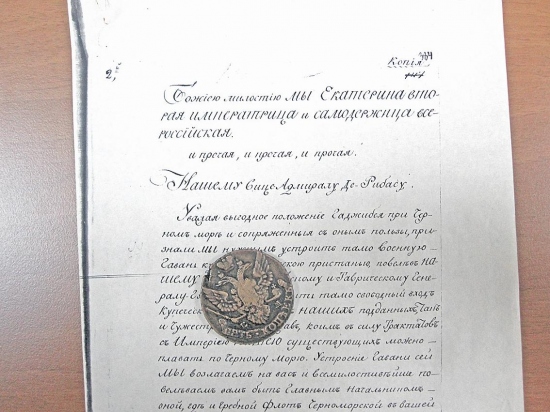 2,
Копія
Божіею милостію мы Екатерина вто
рая императрица и самодержица все
россійская.
и протая, и протая, и протая.
Нашему Вице Адмиралу Де-Рибасу.
Уважая выгодное положение Гаджибея при Чер
ном море и сопряженныя съ онымъ пользы, приз
нали мы нужнымъ устроить тамо военную
гавань купеческою пристанью, повелевъ на
шему ному и Таврическому Гене
ралу тамо свободный входъ
Купеческ нашихъ подданныхъ, такъ
и чужестр авъ, коимъ въ силу Трактатовъ
съ Империею существующихъ можно
плавать по Черному Морю. Устроение Гавани сей
мы возлагаемъ на васъ и всемилостивейше по
велеваемъ вамъ быть Главнымъ Начальникомъ
оной, где и Гребной Флотъ Черноморской въ вашей
ПЯТЬ КОПѢЕКЪ